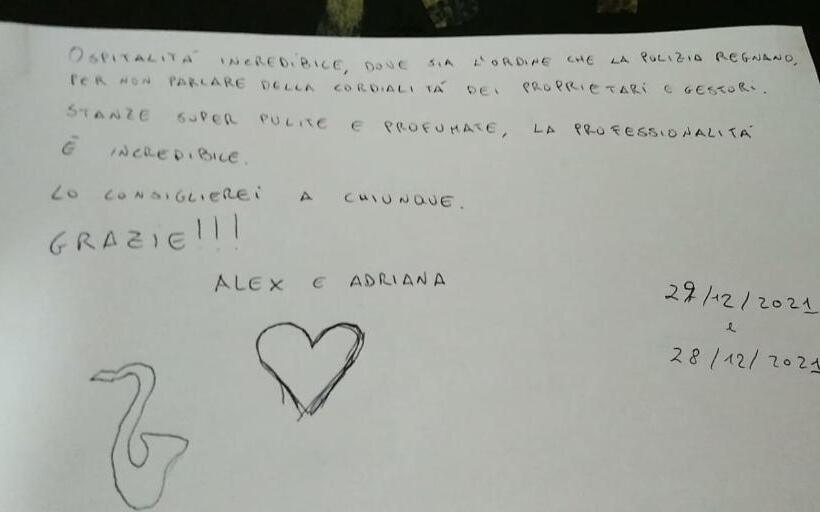 OSPITALITÀ INCREDIBILE, DOVE SIA L'ORDINE CHE LA PULIZIA REGNANO,
PER NON PARLARE DELLA CORDIALITÀ DEI PROPRIETARI E GESTORI.
STANZE SUPER PULITE E PROFUMATE, LA PROFESSIONALITÀ
È INCREDIBILE.
LO CONSIGLIEREI A CHIUNQUE.
GRAZIE!!!
ALEX E ADRIANA
27/12/2021
e
28/12/2021